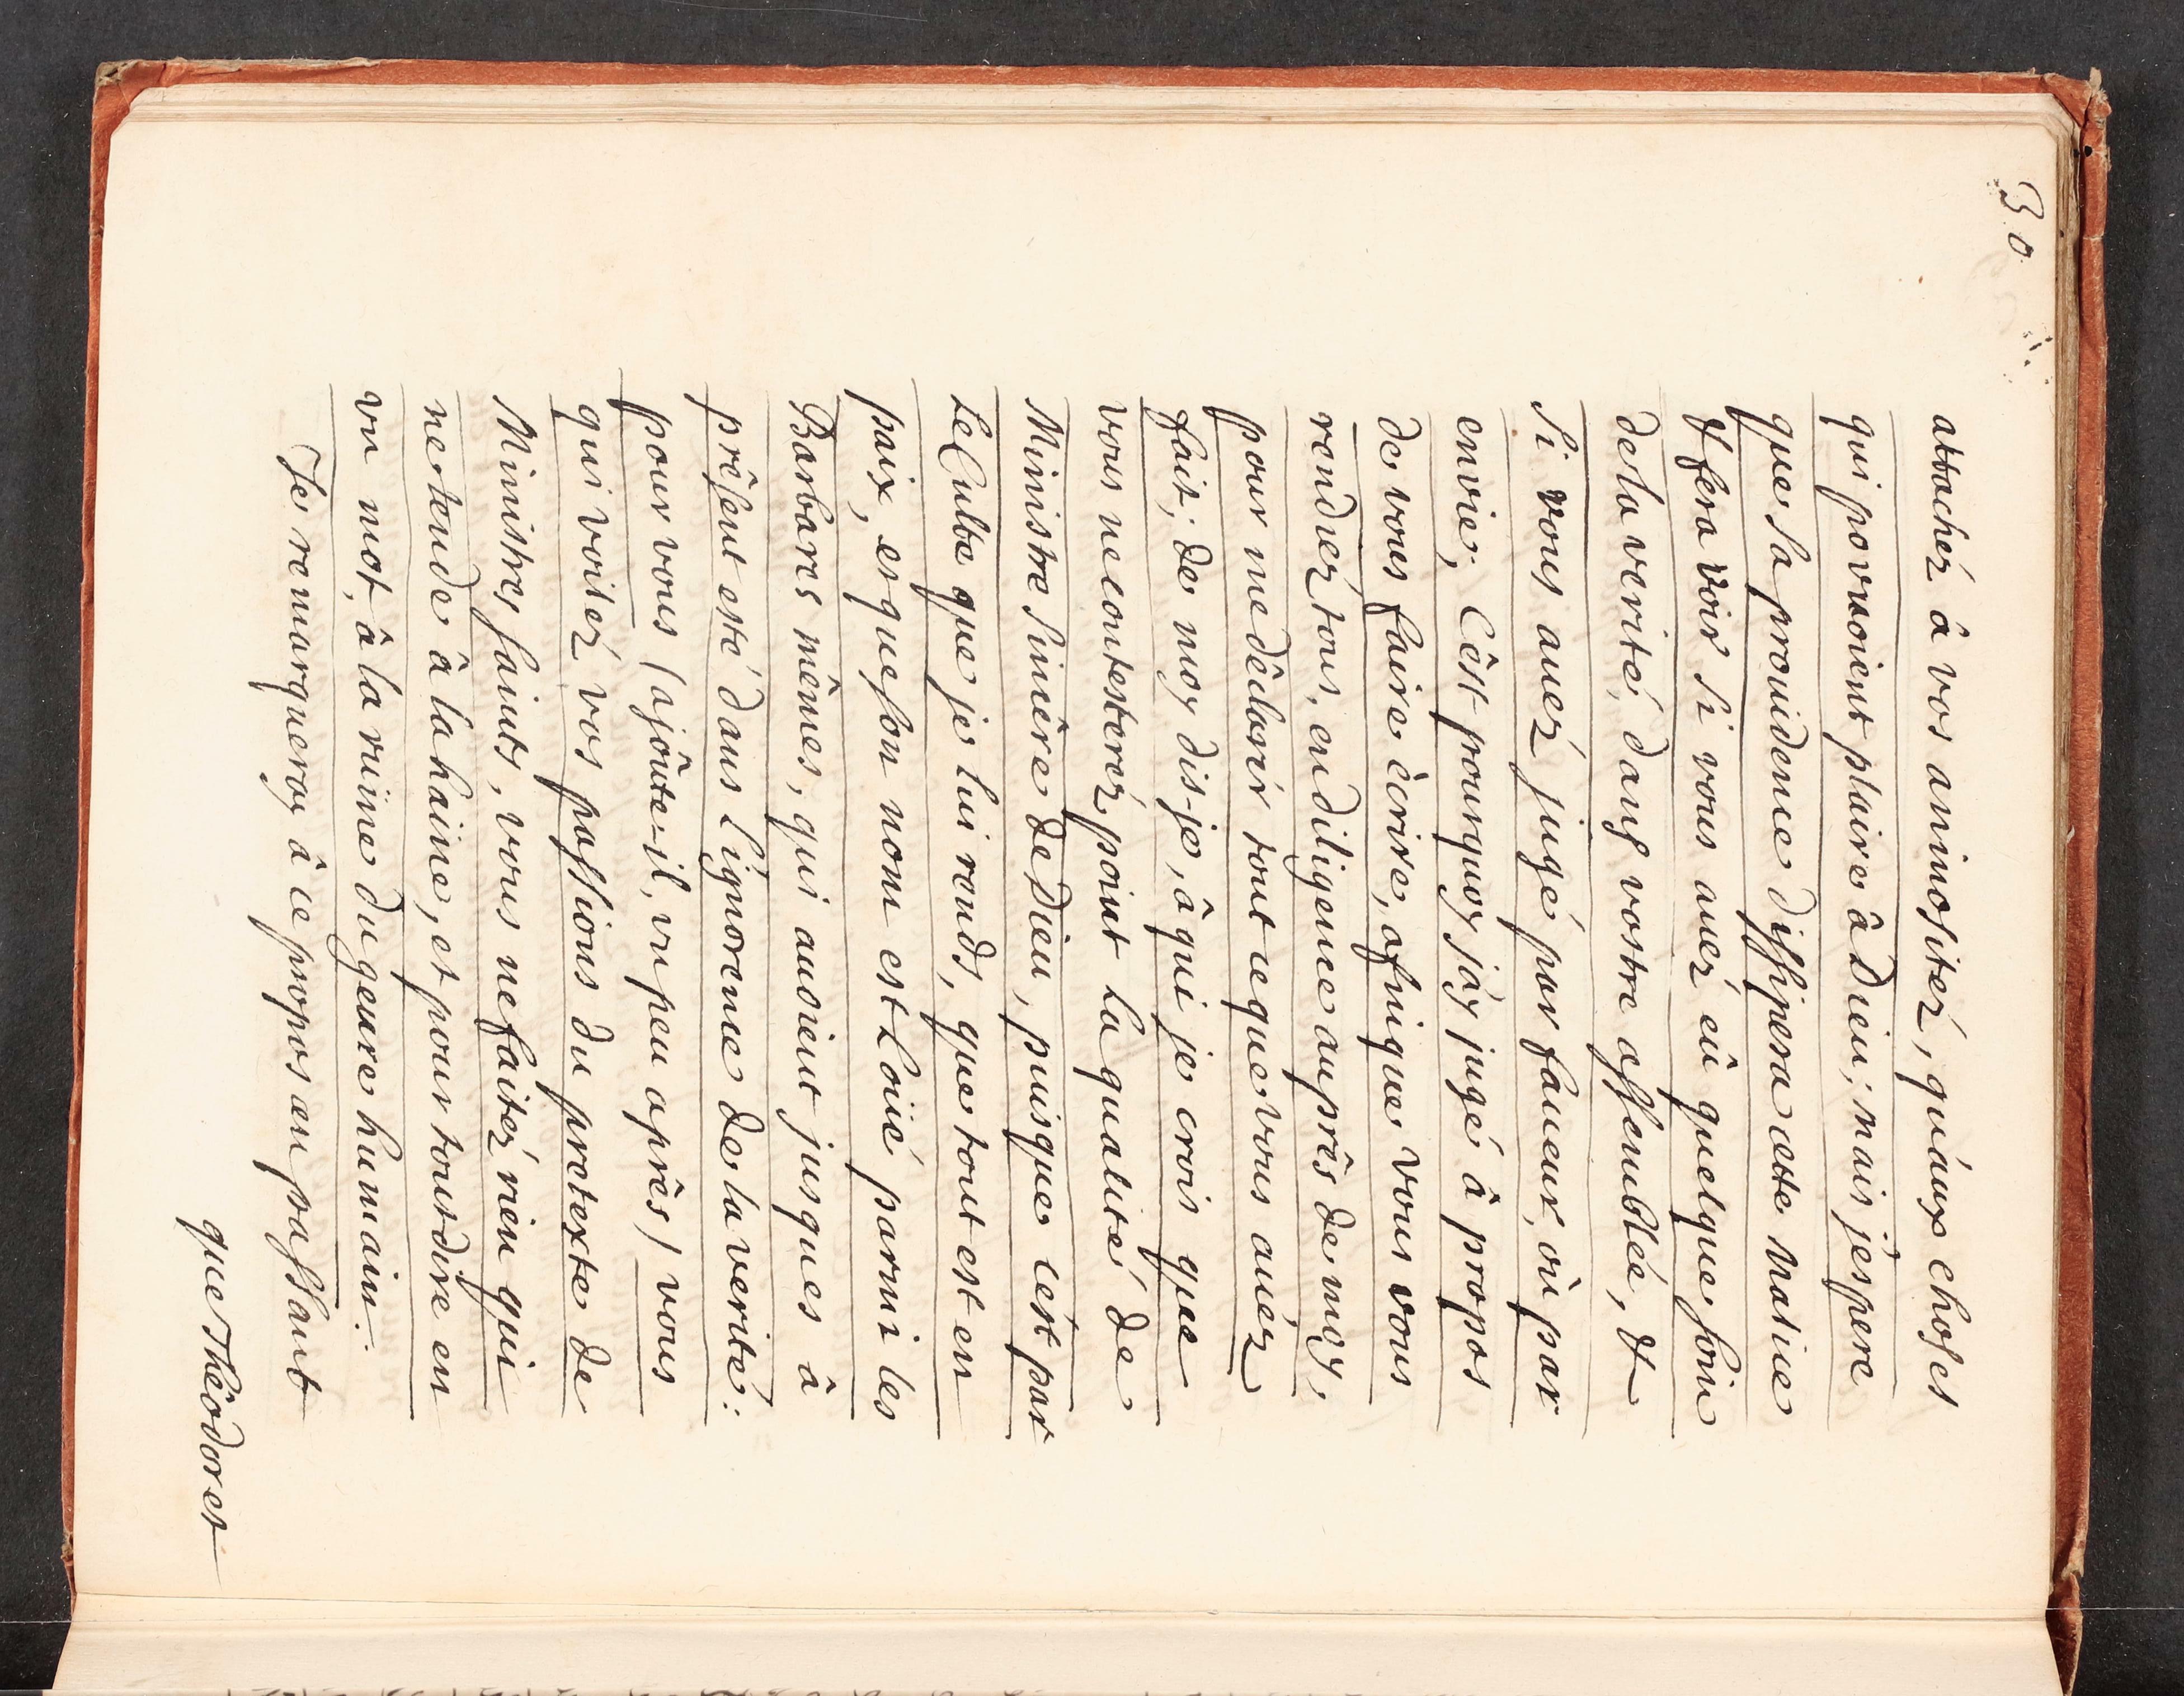 30
attachéz â vos animositéz, qu'aux choses
qui pouvoient plaire â Dieu; mais j'espere
que sa prouidence dissipera cette matiere
& fera voir si vous auez eû quelque soin
de la verité, dans vostre assemblée, &
si vous auez jugé par faueur, où par
envie; C'êst pourquoy j'ay jugé â propos
de vous faire êcrire, afin que vous vous
rendiez tous, en diligence auprês de moy,
pour me dêclarér tout ce que vous auéz
fait; de moy dis-je, â qui je crois que
vous ne contesteréz point la qualité de
Ministre sincêre de Dieu, puisque c'est par
Le Culte que je lui rends, que tout est en
paix, et que son nom est Loüé parmi les
Barbares mêmes, qui auoient jusques â
prêsent esté dans l'ignorence de la verité:
pour vous (ajôute-il, vn peu aprês) vous
qui voiléz vos passions du pretexte de
Ministres saints, vous ne faitéz rien qui
ne tende â la haine, et pour tout dire en
vn mot, â la ruine du genre humain.
Je remarqueray â ce propos en passant
que Thêodoret